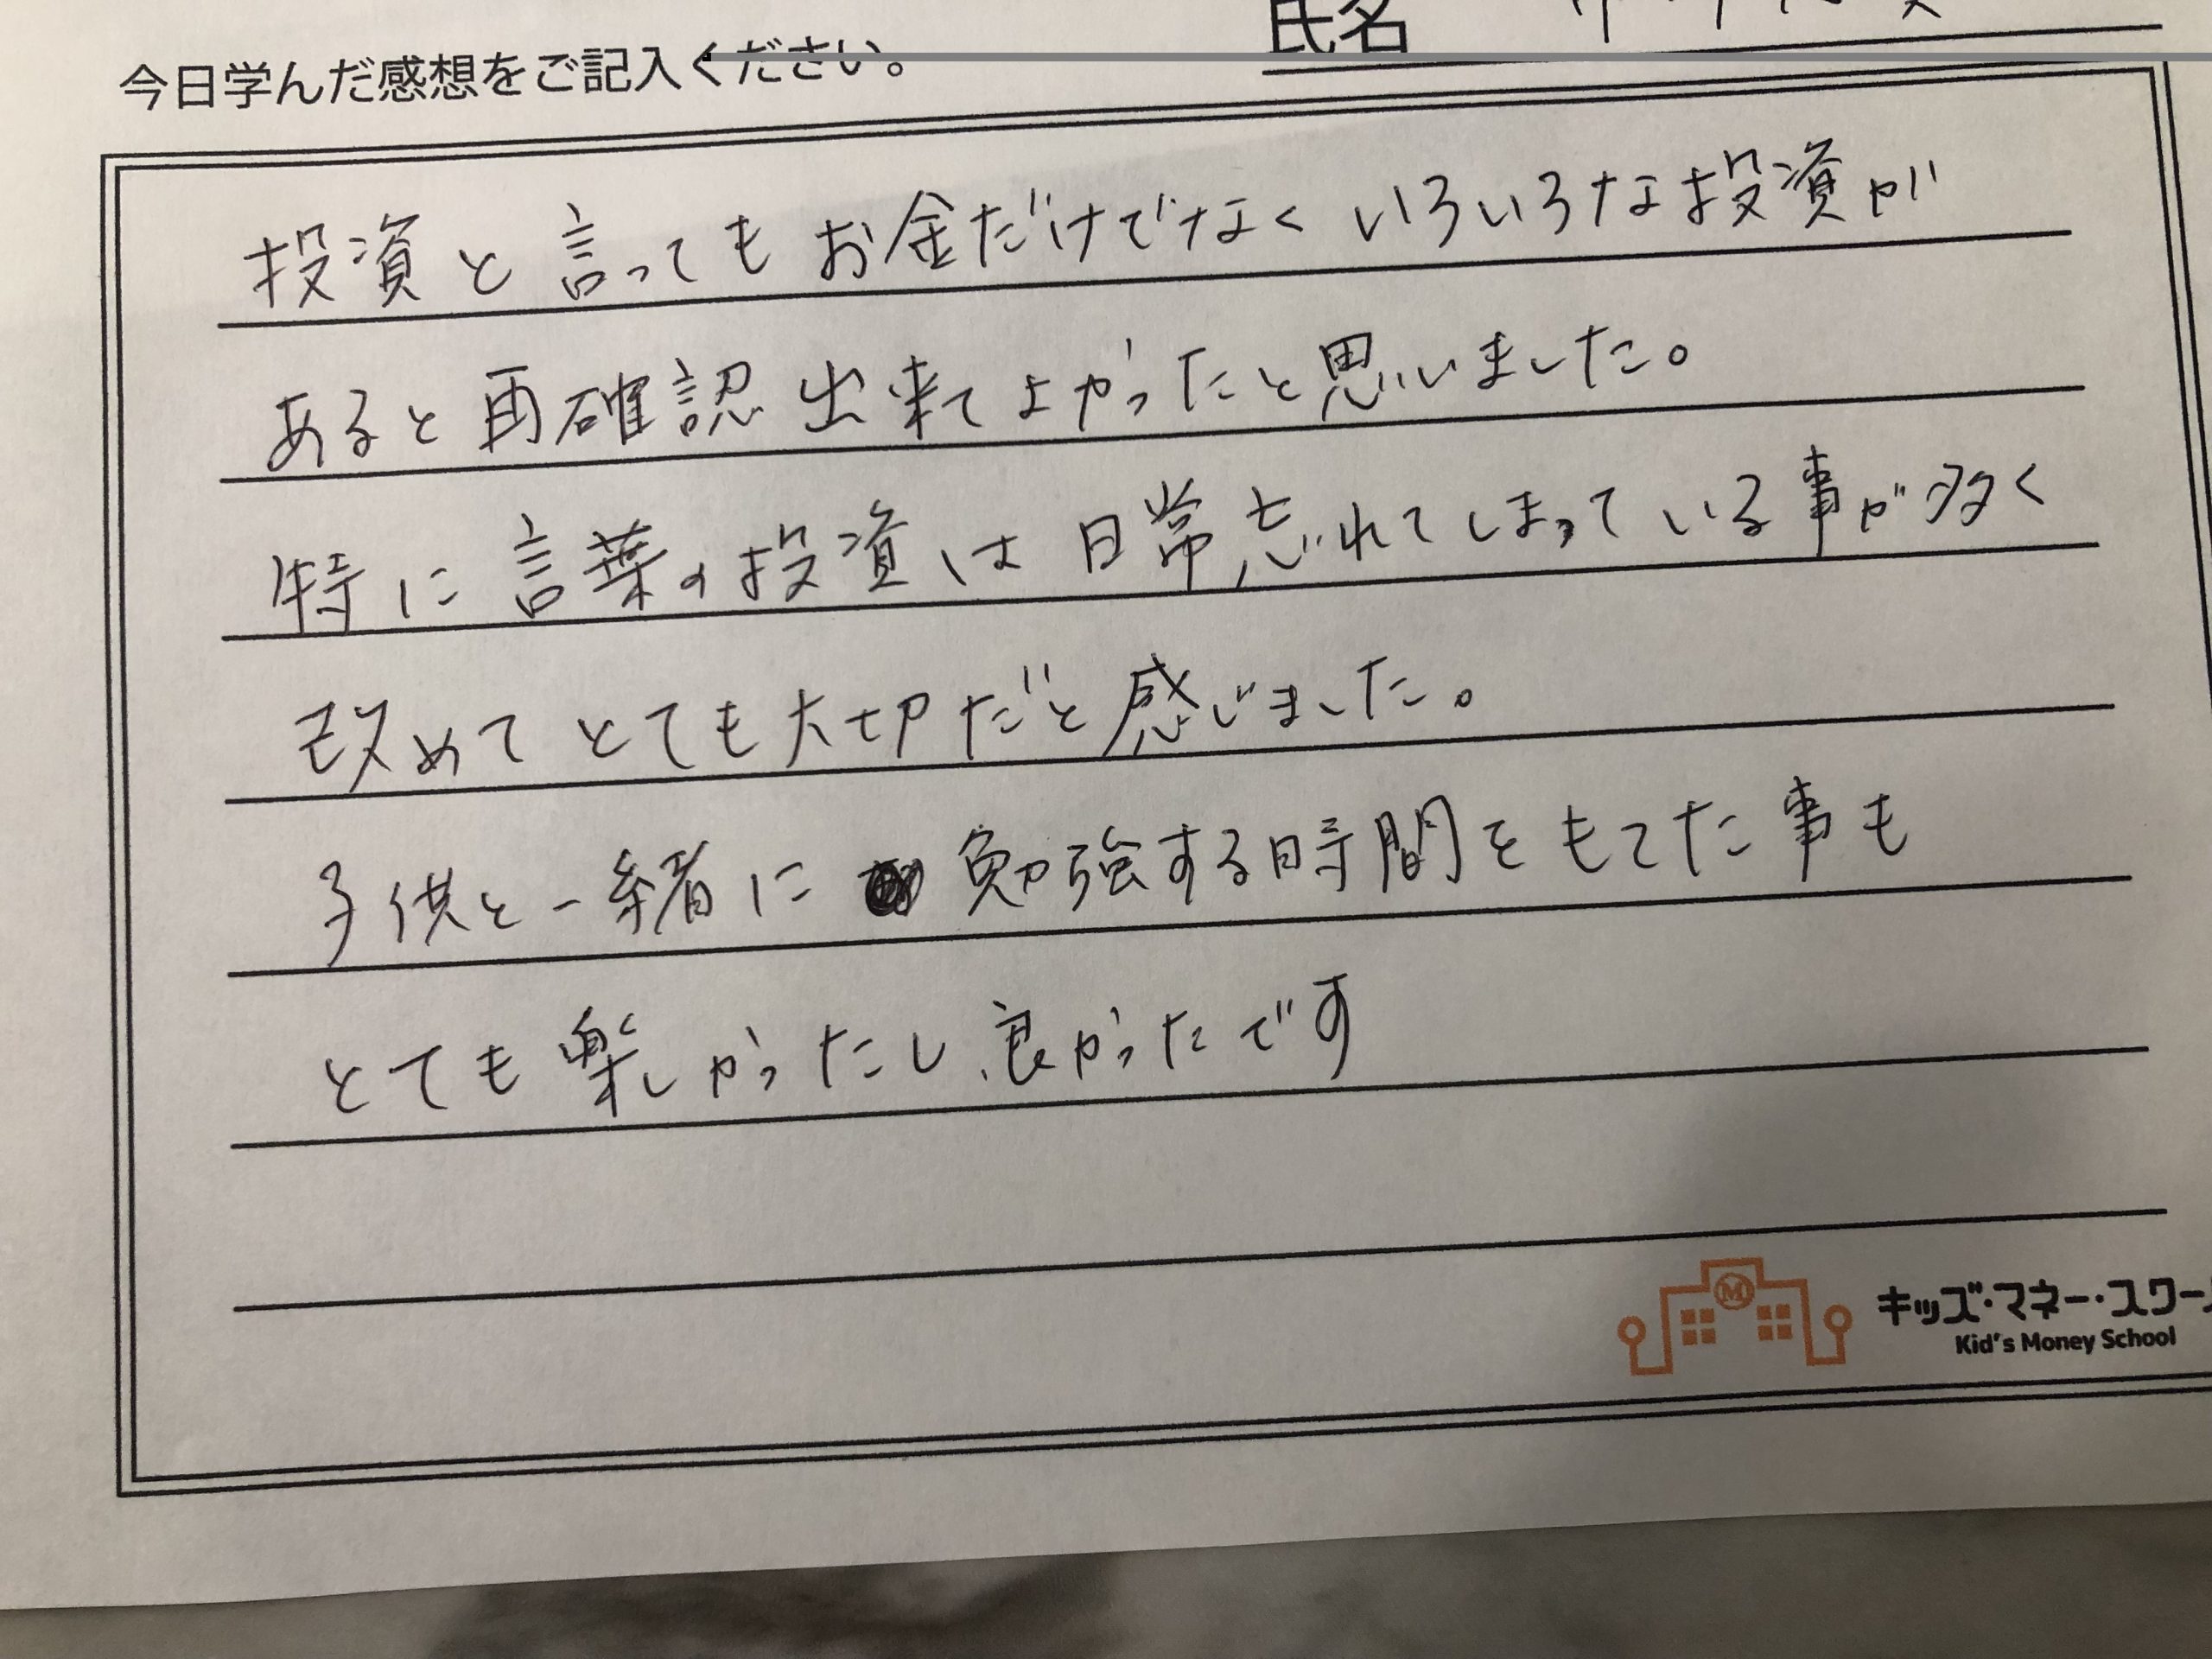 氏名
今日学んだ感想をご記入ください。
投資と言ってもお金だけでなくいろいろな投資が
あると再確認出来てよかったと思いました。
特に言葉の投資は日常忘れてしまっている事が多く
改めてとても大切だと感じました。
子供と一緒に勉強する時間をもてた事も
とても楽しかったし、良かったです
M
キッズ・マネー・スクール
Kid's Money School